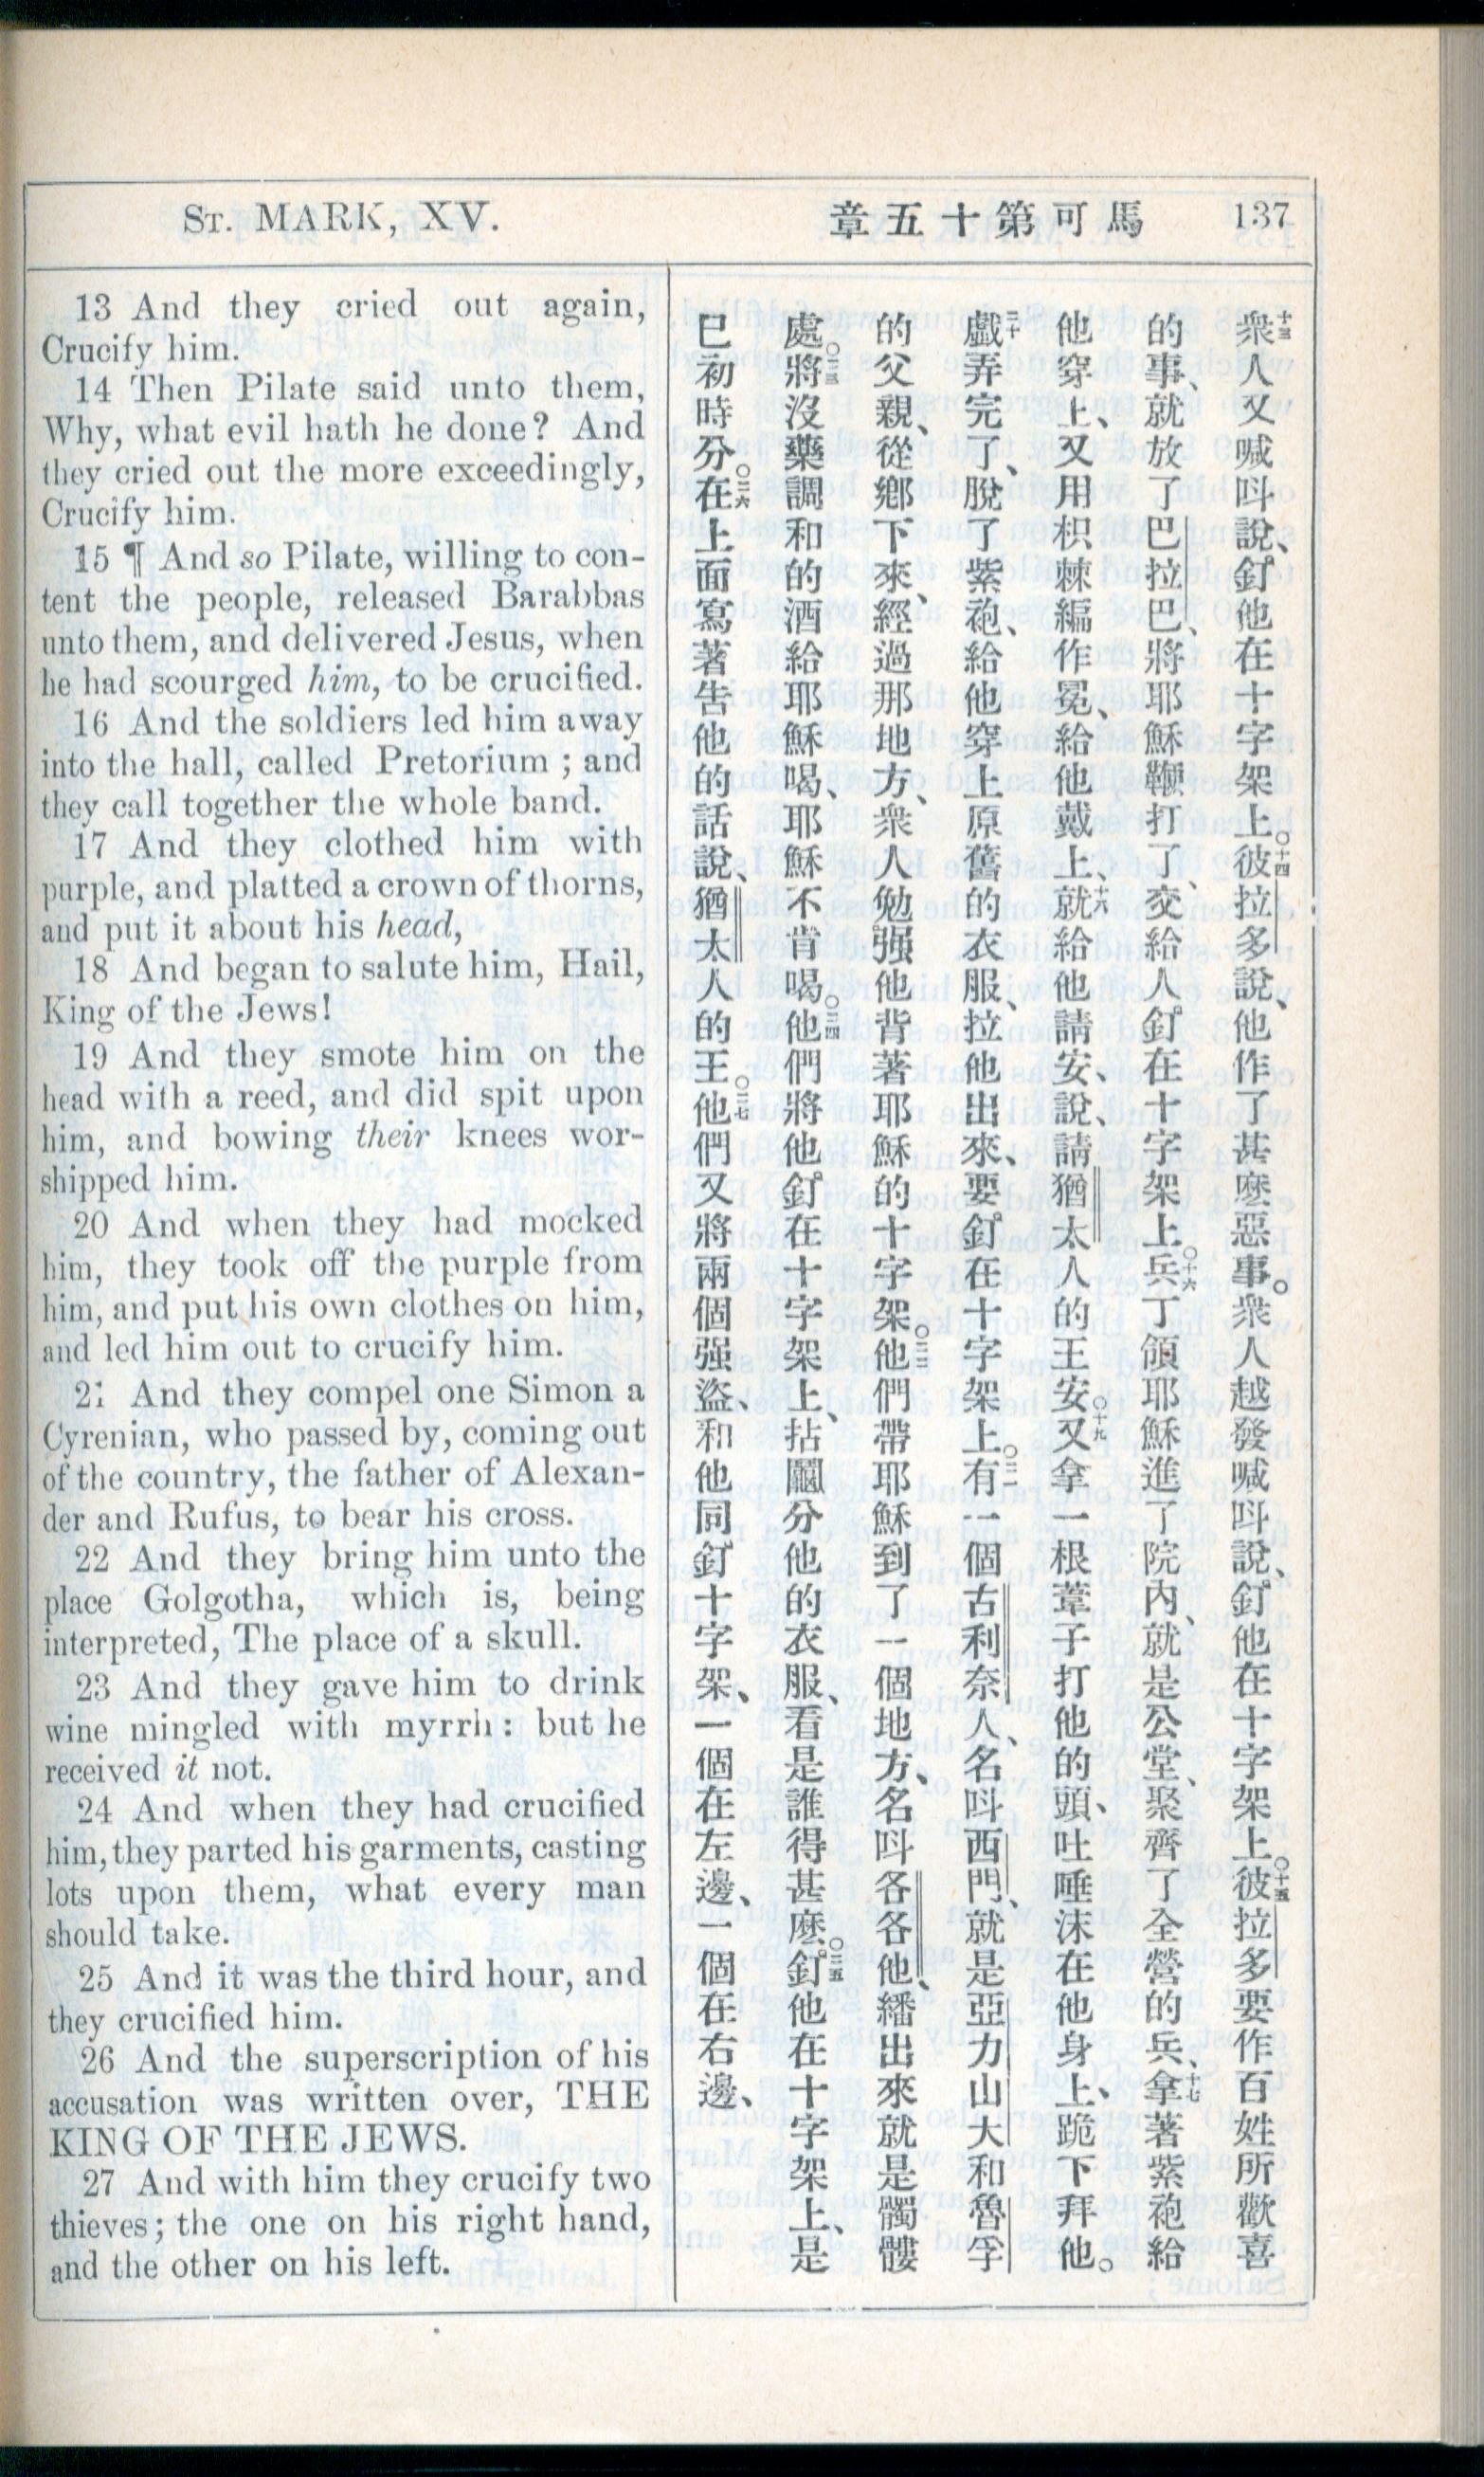 ST. MARK, XV.
章五十第可馬
137
13 And they cried out again,
Crucify him.
14 Then Pilate said unto them,
Why, what evil hath he done? And
they cried out the more exceedingly,
Crucify him.
15 ¶ And so Pilate, willing to con-
tent the people, released Barabbas
unto them, and delivered Jesus, when
he had scourged him, to be crucified.
16 And the soldiers led him away
into the hall, called Pretorium ; and
they call together the whole band.
17 And they clothed him with
purple, and platted a crown of thorns,
and put it about his head,
18 And began to salute him, Hail,
King of the Jews!
19 And they smote him on the
head with a reed, and did spit upon
him, and bowing their knees wor-
shipped him.
20 And when they had mocked
him, they took off the purple from
him, and put his own clothes on him,
and led him out to crucify him.
21 And they compel one Simon a
Cyrenian, who passed by, coming out
of the country, the father of Alexan-
der and Rufus, to bear his cross.
22 And they bring him unto the
place Golgotha, which is, being
interpreted, The place of a skull.
23 And they gave him to drink
wine mingled with myrrh : but he
received it not.
24 And when they had crucified
him, they parted his garments, casting
lots upon them, what every man
should take.
25 And it was the third hour, and
they crucified him.
26 And the superscription of his
accusation was written over, THE
KING OF THE JEWS.
27 And with him they crucify two
thieves ; the one on his right hand,
and the other on his left.
十三衆人又喊呌說、釘他在十字架上。○十四彼拉多說、他作了甚麽惡事。衆人越發喊呌說、釘他在十字架上。○十五彼拉多要作百姓所歡喜
的事、就放了巴拉巴、將耶穌鞭打了、交給人釘在十字架上。○十六兵丁領耶穌進了院內、就是公堂、聚齊了全營的兵、十七拿著紫袍給
他穿上、又用枳棘編作冕、給他戴上、十八就給他請安、說、請猶太人的王安。○十九又拿一根葦子打他的頭、吐唾沫在他身上、跪下拜他。
二十戲弄完了、脫了紫袍、給他穿上原舊的衣服、拉他出來、要釘在十字架上。○二一有一個古利奈人、名呌西門、就是亞力山大和魯孚
的父親、從鄉下來、經過那地方、衆人勉强他背著耶穌的十字架。○二二他們帶耶穌到了一個地方、名呌各各他、繙出來就是髑髏
處。○二三將沒藥調和的酒給耶穌喝、耶穌不肯喝。○二四他們將他釘在十字架上、拈鬮分他的衣服、看是誰得甚麽。○二五釘他在十字架上、是
巳初時分。○二六在上面寫著告他的話說、猶太人的王。○二七他們又將兩個强盜、和他同釘十字架、一個在左邊、一個在右邊、